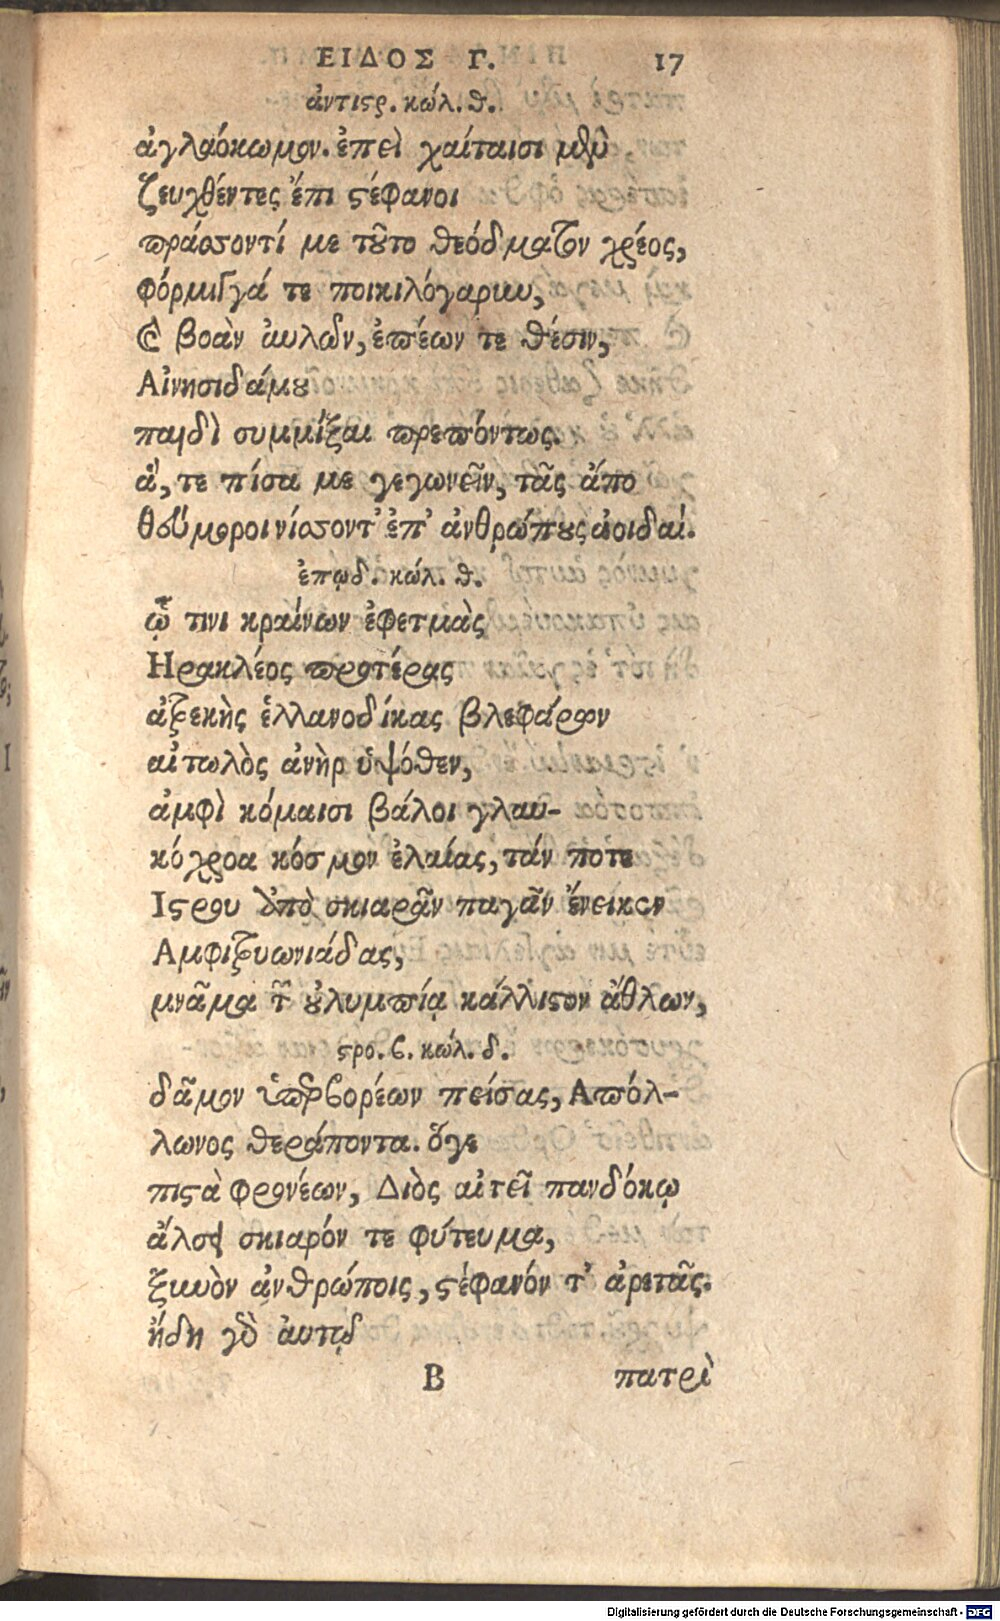 ΕΙΔΟΣ Γ. 17
ἀντιϛρ. κώλ. θ.
ἀγλαόκωμον. ἐπεὶ χαίταισι μὲν
ζευχθέντες ἔπι ϛέφανοι
πράσσοντί με τȣ̃το θεόδματον χρέος,
φόρμιγγά τε ποικιλόγαρυν,
καὶ βοὰν ἀυλῶν, ἐπέων τε θέσιν,
Αἰνησιδάμȣ
παιδὶ συμμίξαι πρεπόντως.
ἅ, τε πίσα με γεγωνεῖν, τᾶς ἄπο
θεύμοροι νίσσοντ' ἐπ' ἀνθρώπȣς ἀοιδαί.
ἐπῳδ. κώλ. θ.
ᾧ τινι κραίνων ἐφετμὰς
Ηρακλέος προτέρας
ἀτρεκὴς ἑλλανοδίκας βλεφάρων
αἰτωλὸς ἀνὴρ ὑψόθεν,
ἀμφὶ κόμαισι βάλοι γλαυ-
κόχροα κόσμον ἐλαίας, τάν ποτε
Ιϛρου ἀπὸ σκιαρᾶν παγᾶν ἔνεικεν
Αμφιτρυωνιάδας,
μνᾶμα τῶν ȣ̓λυμπίᾳ κάλλιϛον ἄθλων,
ϛρο. ϐ. κώλ. δ.
δᾶμον ὑπερϐορέων πείσας, Απόλ-
λωνος θεράποντα. ὅγε
πιϛὰ φρονέων, Διὸς αἰτεῖ πανδόκῳ
ἄλσει σκιαρόν τε φύτευμα,
ξυνὸν ἀνθρώποις, ϛέφανόν τ' ἀρετᾶς.
ἤδη γὰρ ἀυτῷ
Β πατρὶ
Digitalisierung gefördert durch die Deutsche Forschungsgemeinschaft - DFG